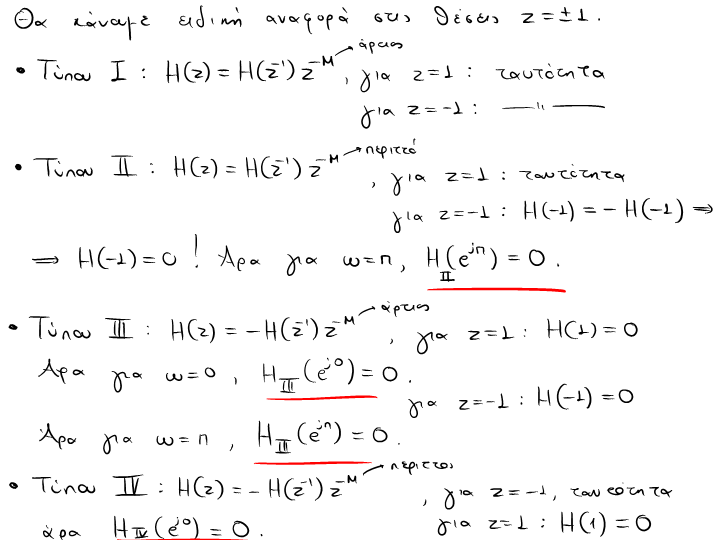 Θα κάναμε ειδική αναφορά στις θέσεις z = ±1.
• Τύπου I : H(z) = H(z⁻¹) z⁻ᴹ → άρτιος , για z = 1 : ταυτότητα
για z = -1 : —〃—
• Τύπου II : H(z) = H(z⁻¹) z⁻ᴹ → περιττό , για z = 1 : ταυτότητα
για z = -1 : H(-1) = - H(-1) ⇒
⇒ H(-1) = 0 ! Άρα για ω = π, H_II(e^{jπ}) = 0.
• Τύπου III : H(z) = - H(z⁻¹) z⁻ᴹ → άρτιος , για z = 1 : H(1) = 0
Άρα για ω = 0 , H_III(e^{j0}) = 0.
για z = -1 : H(-1) = 0
Άρα για ω = π , H_III(e^{jπ}) = 0.
• Τύπου IV : H(z) = - H(z⁻¹) z⁻ᴹ → περιττος , για z = -1, ταυτότητα
άρα H_IV(e^{j0}) = 0. για z = 1 : H(1) = 0